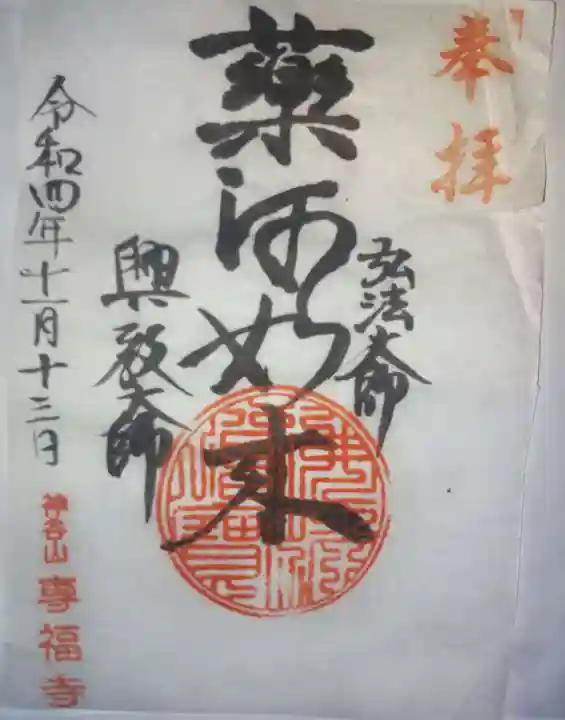 奉拝
弘法大師
薬師如来
興教大師
令和四年十一月十三日
神谷山
專福寺